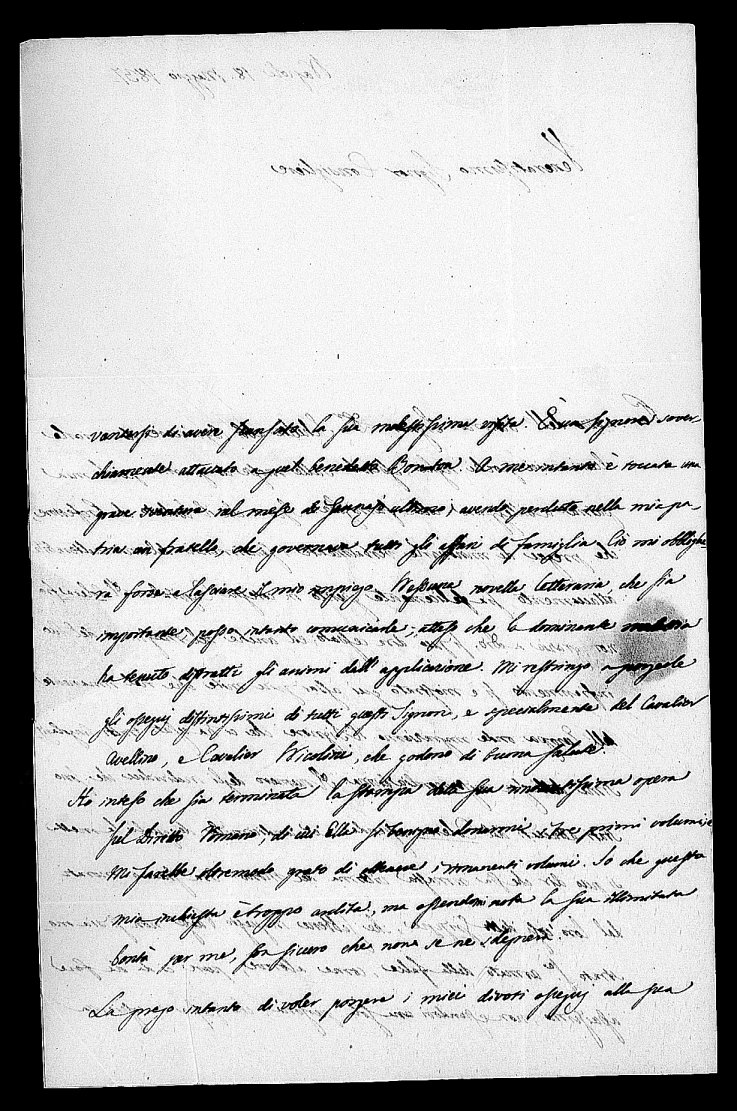 vantarsi di avere scansata la sua molestissima visita. È una signora sover-
chiamente attaccata a quel benedetto Bonaton. A me intanto è toccata una
grave sventura nel mese di Gennajo ultimo, avendo perduta nella mia pa-
tria un fratello, che governava tutti gli affari di famiglia. Ciò mi obblighe-
rà forse a lasciare il mio impiego. Nessuna novella letteraria che sia
importante posso intanto comunicarle, atteso che la dominante malattia
ha tenuto distratti gli animi dall'applicazione. Mi restringo a porgerle
gli ossequj distintissimi di tutti questi Signori, e specialmente del Cavalier
Avellino, e Cavalier Nicolini, che godono di buona salute.
Ho inteso che sia terminata la stampa della sua opera
sul Diritto Romano, di cui Ella si donarmi tre primi volumi, e
mi sarebbe oltremodo grato di ottenere i rimanenti volumi. So che questa
mia inchiesta è troppo ardita, ma essendomi nota la sua illimitata
bontà per me, son sicuro che non se ne sdegnerà.
La prego intanto di voler porgere i miei divoti ossequj alla sua